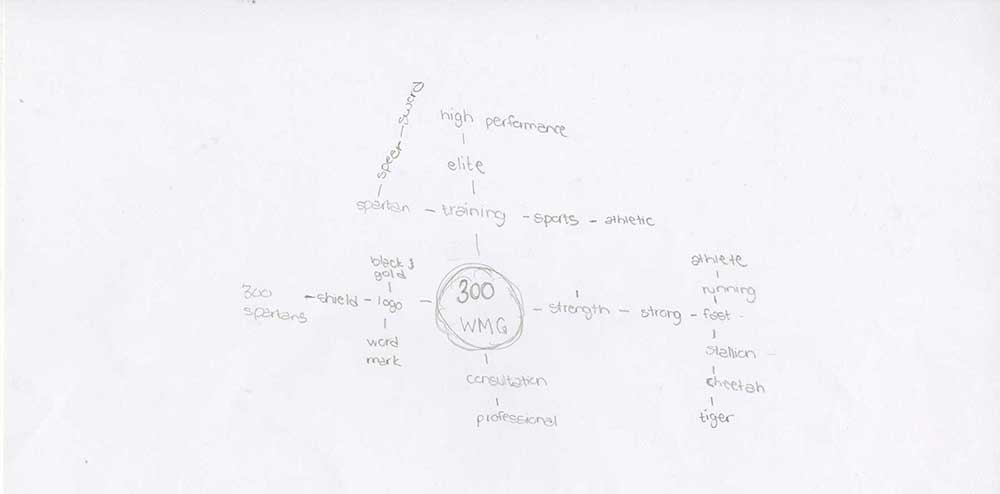 sword
speer
high performance
elite
spartan – training – sports – athletic
black &
gold
300
spartans
– shield – logo –
word
mark
300
WMG
– strength – strong – fast
athlete
running
stallion
cheetah
tiger
consultation
professional